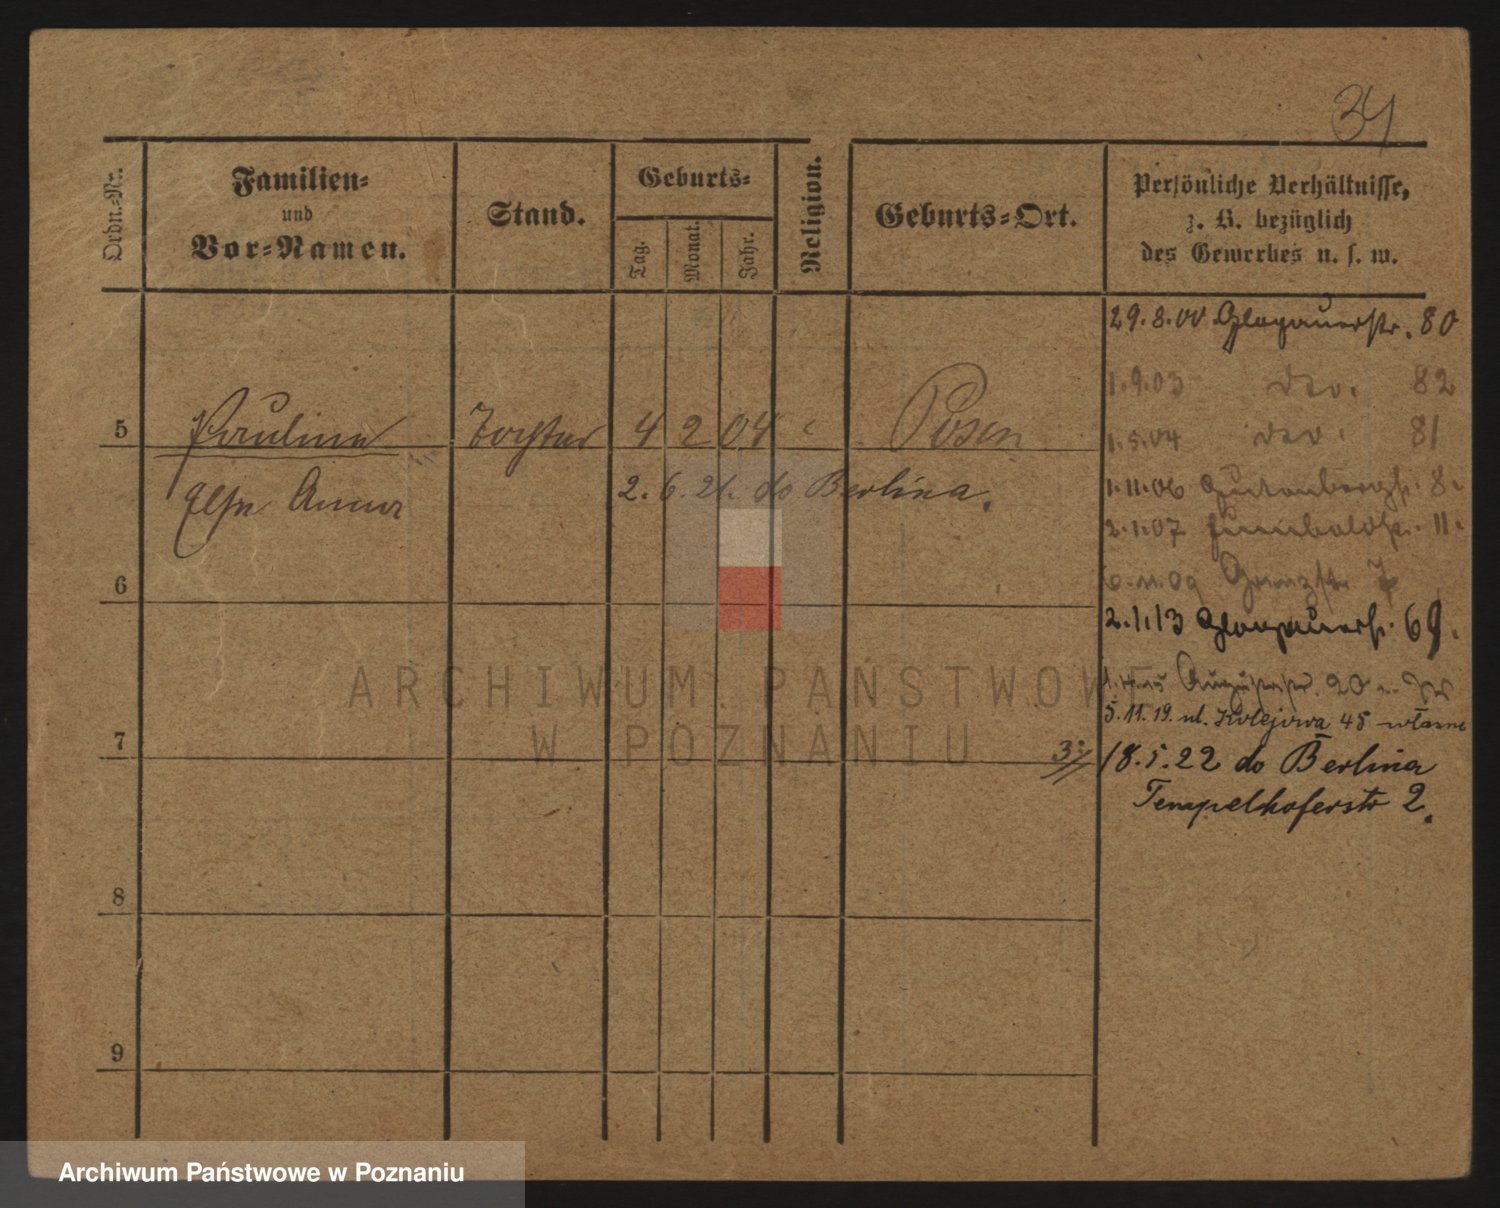 34
Ordn.-Nr.
Familien-
und
Vor-Namen.
Stand.
Geburts-
Tag.
Monat.
Jahr.
Religion.
Geburts-Ort.
Persönliche Verhältnisse,
z. B. bezüglich
des Gewerbes u. s. w.
29.8.00 Glogauerstr. 80
1.9.03 dto. 82
1.5.04 dto. 81
1.11.06 Gutenbergstr. 8.
2.1.07 Humboldtstr. 11.
11.09 Grenzstr. 7
2.1.13 Glogauerstr. 69.
Augustastr. 20
5.11.19. ul. Kolejowa 45 własne
3) 18.5.22 do Berlina
Tempelhoferstr 2.
5 Pauline Tochter 4 2 04 " Posen
Else Anna 2.6.21. do Berlina.
6
7
8
9
ARCHIWUM PAŃSTWOWE
W POZNANIU
Archiwum Państwowe w Poznaniu